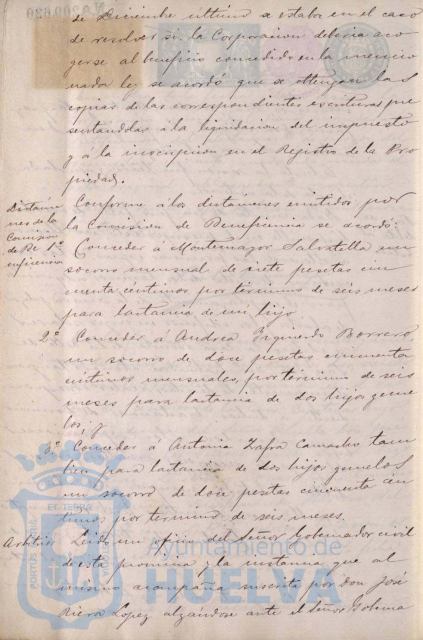 de Diciembre último se estaba en el caso
de resolver si la Corporacion deberia aco
gerse al beneficio concedido en la mencio
nada ley se acordó que se obtengan las
copias de las correspondientes escrituras pre
sentándolas á la liquidacion del impuesto
y á la inscripcion en el Registro de la Pro
piedad.
Dictame
nes de la
Comision
de Be
neficencia
Conforme á los dictámenes emitidos por
la Comision de Beneficencia se acordó:
1º Conceder á Montemayor Salvatella un
socorro mensual de siete pesetas cin
cuenta céntimos por término de seis meses
para lactancia de un hijo.
2º Conceder á Andrea Izquierdo Borrero
un socorro de doce pesetas cincuenta
céntimos mensuales, por término de seis
meses para lactancia de dos hijos geme
los, y
3º Conceder á Antonia Zafra Camacho tam
bien para lactancia de dos hijos gemelos
un socorro de doce pesetas cincuenta cén
timos por término de seis meses.
Leido un oficio del Señor Gobernador civil
de esta provincia y la instancia que al
mismo acompaña suscrita por don José
Riera Lopez alzándose ante el Señor Goberna
Ayuntamiento de
HUELVA